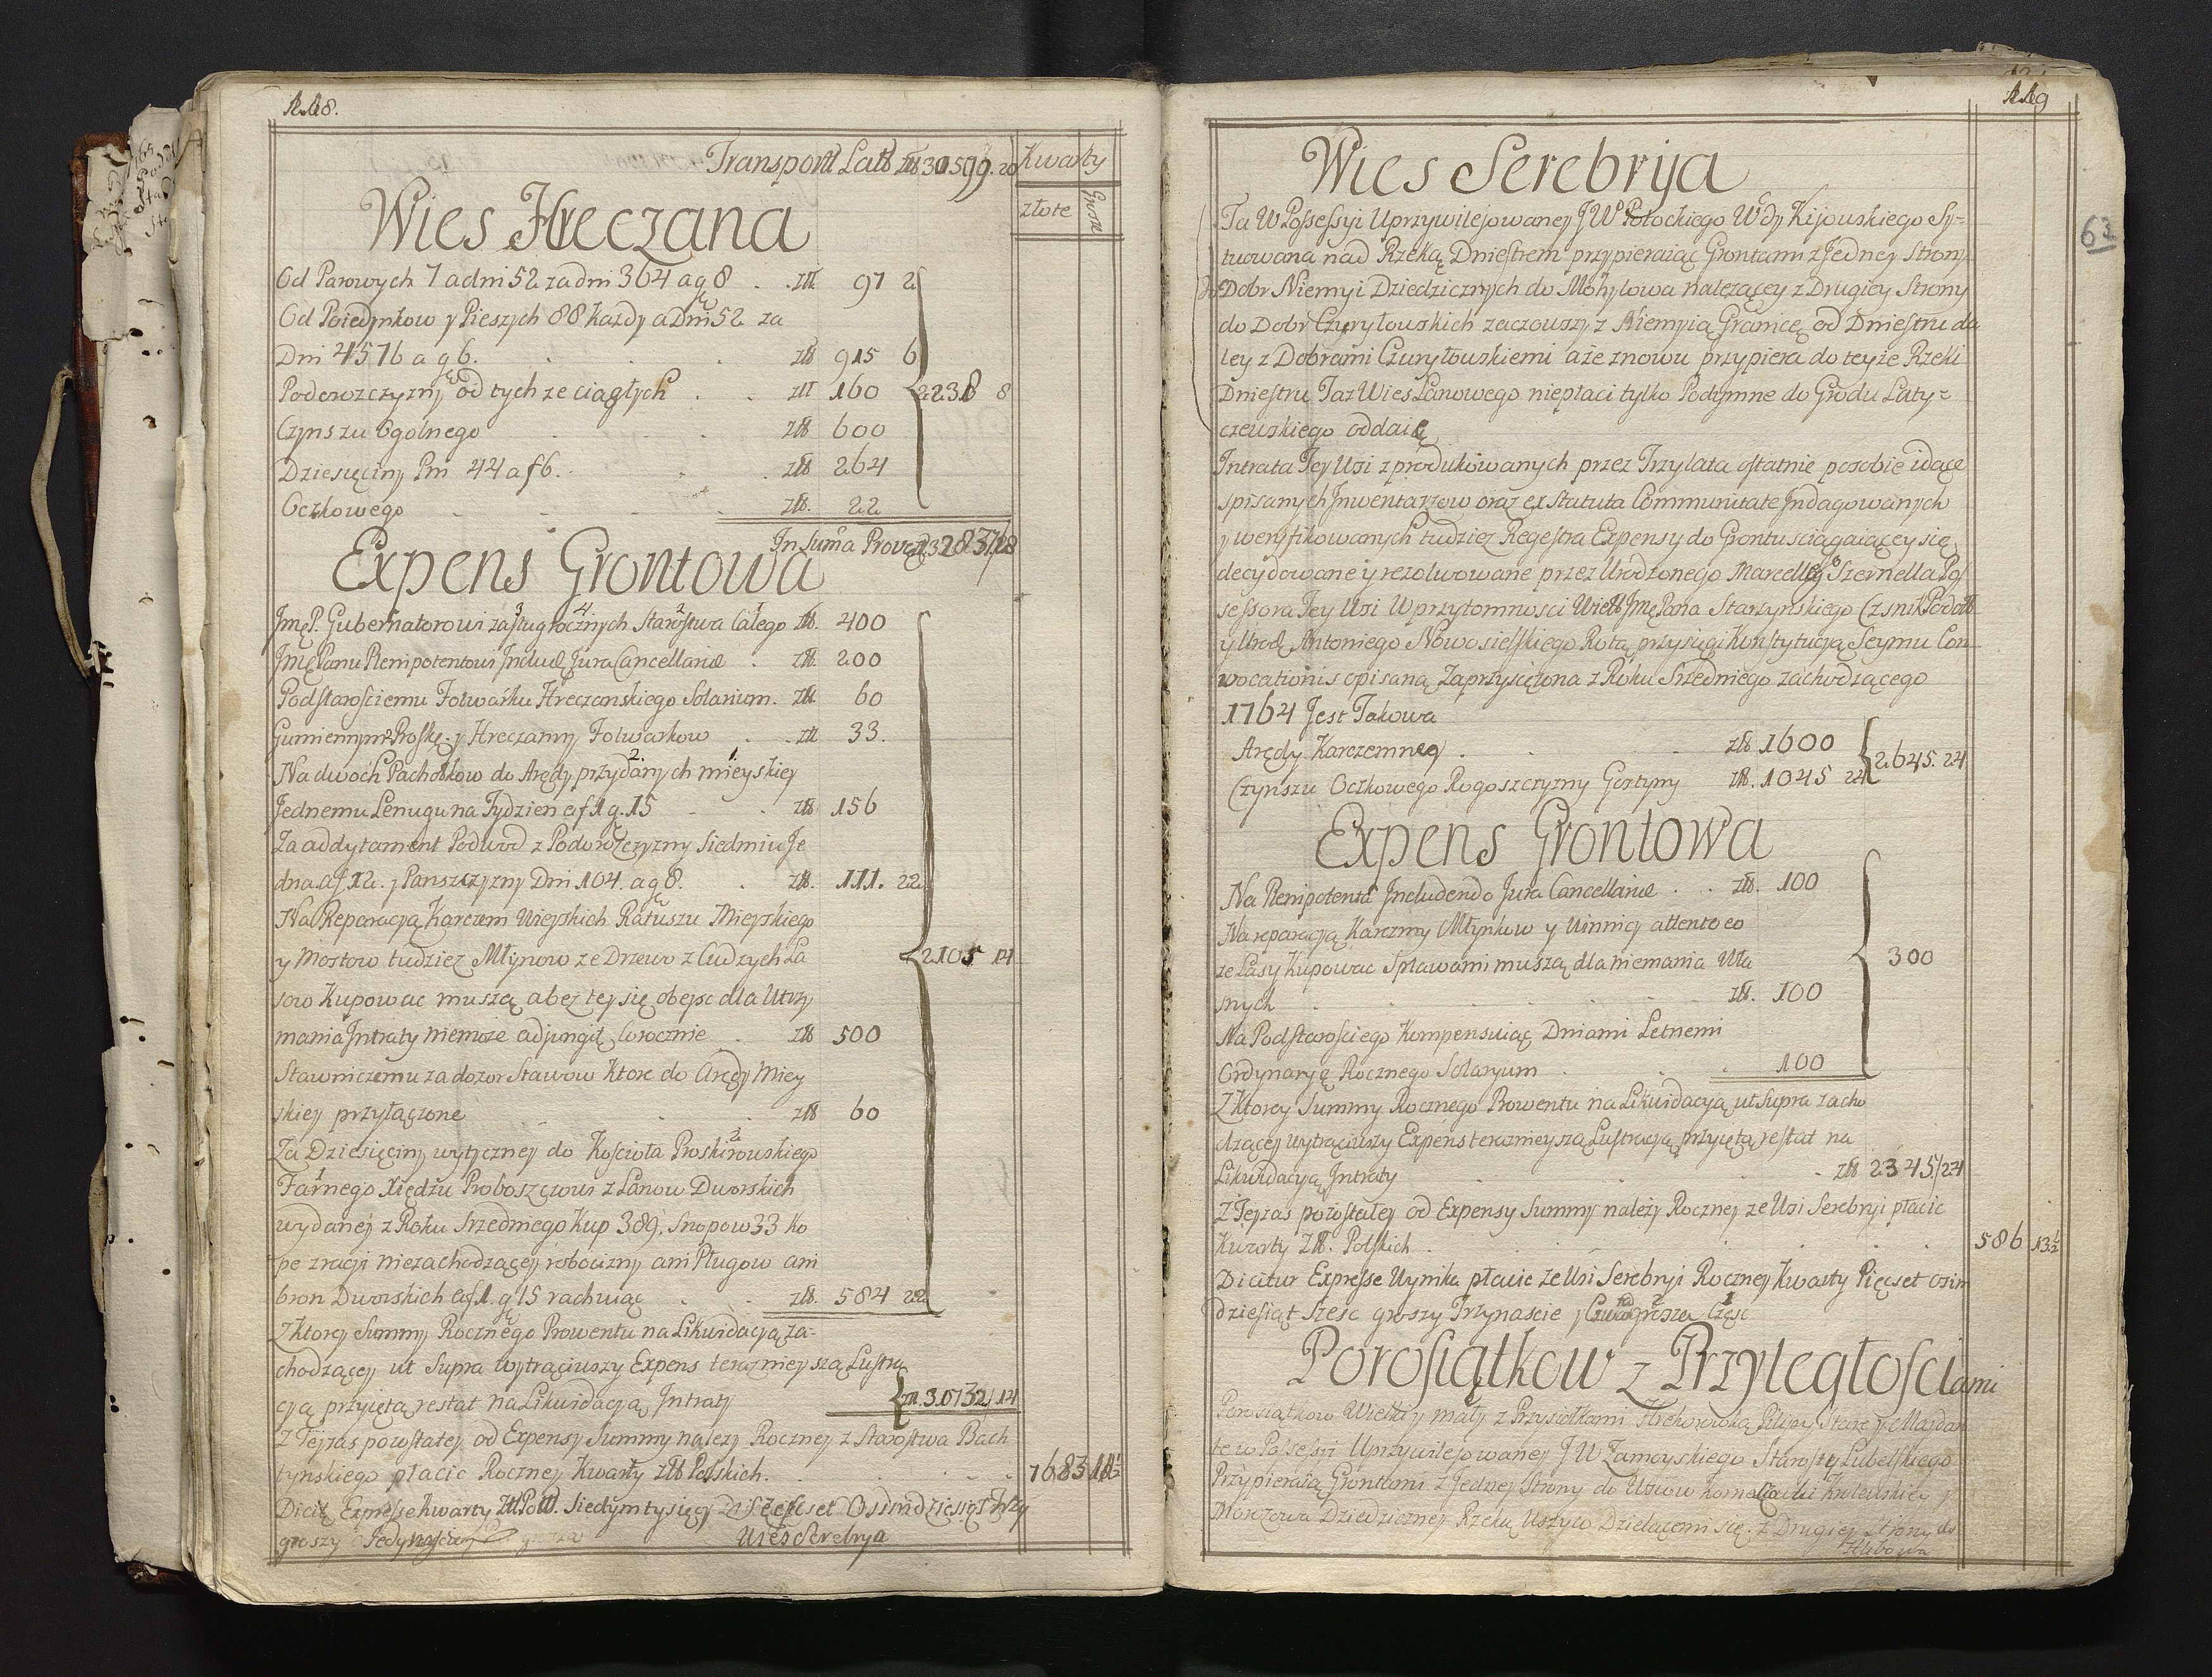 118.
Transport Latt złł 30599. 20 Kwarty
złote Grosze
Wies Hreczana
Od Parowych 7 a dni 52 za dni 364 a g 8 . złł. 97 2
Od Poiedynkow y Pieszych 88 każdy a Dni 52 za
Dni 4576 a g 6. złł 915 6
Podorozczyzny od tych ze ciągłych . . złł 160 2238 8
Czynszu Ogolnego złł 600
Dziesięciny Pni 44 a f 6. złł 264
Oczkowego złł. 22
In Suma Prov. 32837/28
Expens Grontowa
Jmę P. Gubernatorowi zasług rocznych Starostwa Całego złł. 400
Jmę Panu Plenipotentowi Includ Jura Cancellariæ . złł. 200
Podstarosciemu Folwarku Hreczanskiego Solarium. złł. 60
Gumiennym Proskr. y Hreczanny Folwarkow . złł 33.
Na dwoch Pachołkow do Arędy przydanych mieyskiey
Jednemu Lenugu na Tydzien a f 1 g. 15 złł 156
Za addytament Podwod z Podorożczyzny Siedmiu Je
dna. a f. 12. y Panszczyzny Dni 104. a g 8. złł. 111. 22
Na Reparacyą Karczem Wieyskich Ratuszu Mieyskiego
y Mostow tudziez Młynow ze Drzewo z Cudzych La 2105 14
sow Kupowac muszą a bez tey się obeysc dla Utrzy
mania Intraty niemoże adjungit Corocznie . złł 500
Stawniczemu za dozor Stawow Ktore do Arędy Miey
skiey przyłączone złł 60
Za Dziesięciny wytyczney do Koscioła Proskirowskiego
Farnego Xiędzu Proboszczowi z Lanow Dworskich
wydaney z Roku Srzedniego Kup 389, Snopow 33 Ko
pe z racyi niezachodzącey robocizny ani Pługow ani
bron Dworskich a f 1. g 15 rachuiąc . złł. 584 22
Z Ktorey Summy Rocznego Prowentu na Likwidacyą za-
chodzącey ut Supra wytrąciwszy Expens terazniejszą Lustra
cyą przyiętą restat na Likwidacyą Intraty złł. 30732/14
Z Teyzas pozostałey od Expensy Summy nalezy Roczney z Starostwa Bach
tynskiego płacic Roczney Kwarty złł Polskich. 7683 18½
Dicit Expresse Kwarty Złł Poll. Siedym tysięcy Szescset Osimdziesiąt trzy
groszy
Wies Serebrya
119
62
Wies Serebrya
Ta W Possessyi Uprzywilejowaney J W Potockiego Wdy Kijowskiego Sy=
tuowana nad Rzeką Dniestrem przypieraiąc Grontami z Jedney Strony
do Dobr Niemyi Dziedzicznych do Mohylowa nalezącey z Drugiey Strony
do Dobr Czuryłowskich zacząwszy z Niemyią Granicę od Dniestru da
ley z Dobrami Czuryłowskiemi aże znowu przypiera do teyże Rzeki
Dniestru Taz Wies Lanowego niepłaci tylko Podymne do Grodu Laty=
czewskiego oddaie
Intrata Tey Wsi z produkowanych przez Trzy lata ostatnie posobie idące
spisanych Inwentarzow oraz ex Statuta Communitate Indagowanych
y weryfikowanych tudziez Regestra Expensy do Grontu sciągaiącey się
decydowane y rezolwowane przez Urodzonego Marcellego Szernella Pos
sessora Tey Wsi W przytomnosci Wielł Jmę Pana Starzynskiego Czsnik Podoll
y Urod. Antoniego Nowosielskiego Rotą przysięgi Konstytucyą Seymu Con
vocationis opisaną Zaprzysiężona z Roku Srzedniego zachodzącego
1764 Jest Takowa
Arędy Karczemney . złł 1600 2645. 24
Czynszu Oczkowego Rogoszczyzny Gostyny złł. 1045 24
Expens Grontowa
Na Plenipotenta Includendo Jura Cancellariæ . . złł. 100
Na reparacyą Karczmy Młynkow y Winnicy attento eo
ze Lasy Kupowac Spławami muszą dla niemania Wła 300
snych złł. 100
Na Podstarosciego Kompensuiąc Dniami Letnemi
Ordynaryę Rocznego Solaryum 100
Z Ktorey Summy Rocznego Prowentu na Likwidacyą ut Supra zacho
dzącey wytrąciwszy Expens terazniejszą Lustracyą przyiętą restat na
Likwidacyą Intraty złł 2345/24
Z Teyzas pozostałey od Expensy Summy należy Roczney ze Wsi Serebryi płacic
Kwarty Złł. Polskich 586 13½
Dicitur Expresse Wynika płacic ze Wsi Serebryi Roczney Kwarty Pięcset osim
dziesiąt Szesc groszy Trzynascie y grosza Częsc
Porosiątkow z Przyległosciami
Porosiątkow Wielki y mały z Przysiołkami Hrehorowką Pilipy Stare y Maydan
te w Possessyi Uprzywilejowaney J W Zamoyskiego Starosty Lubelskiego
Przypieraią Grontami z Jedney Strony do Wsiow Krolewskiey y
Morozowa Dziedziczney Rzeką Uszyco Dzielącemi się. z Drugiey Strony do
Hlibowa